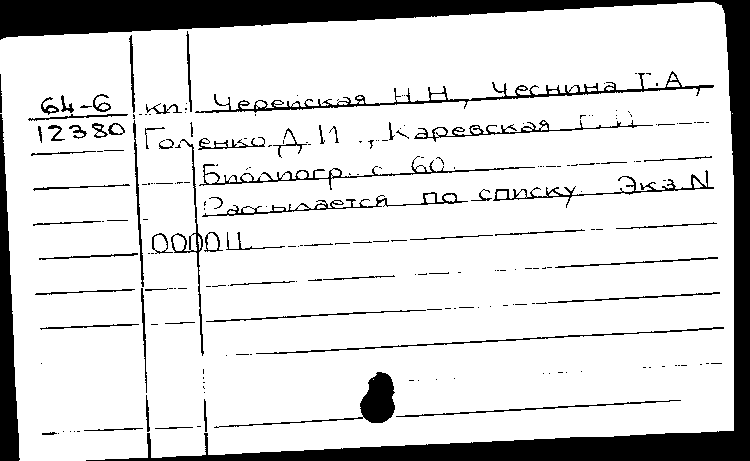 64-6 кн. Черейская Н.Н., Чеснина Т.А.,
12380 Голенко Д.И., Каревская
Библиогр. с. 60.
Рассылается по списку. Экз. N
000011